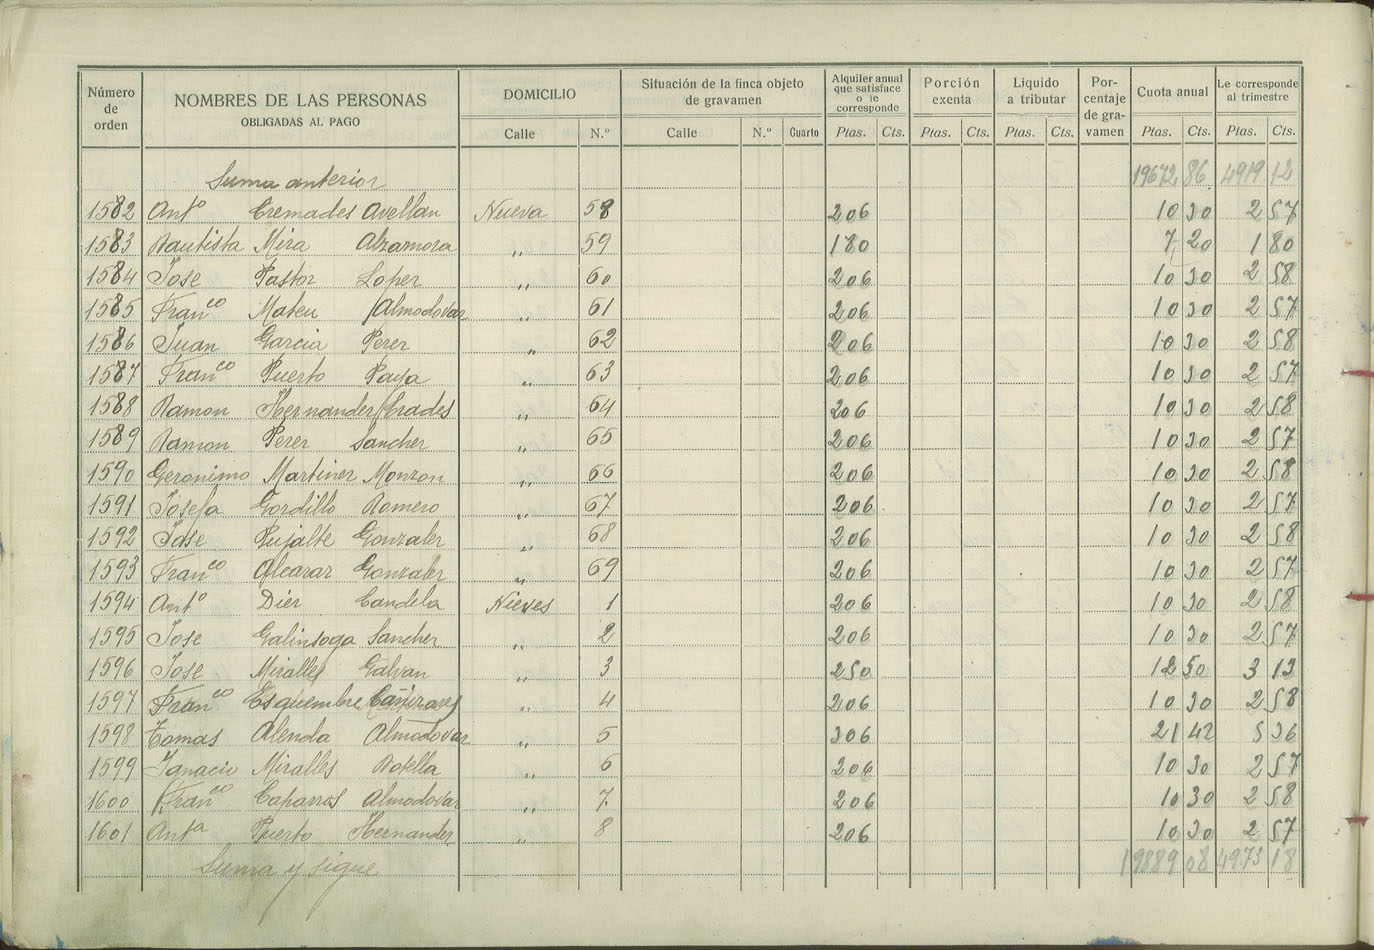 Número de orden | NOMBRES DE LAS PERSONAS OBLIGADAS AL PAGO | DOMICILIO | Situación de la finca objeto de gravamen | Alquiler anual que satisface o le corresponde | Porción exenta | Liquido a tributar | Por-centaje de gra-vamen | Cuota anual | Le corresponde al trimestre
Calle | N.º | Calle | N.º | Cuarto | Ptas. | Cts. | Ptas. | Cts. | Ptas. | Cts. | Ptas. | Cts. | Ptas. | Cts.
Suma anterior 19672 86 4919 12
1582 Antº Cremades Avellan Nueva 58 206 10 30 2 57
1583 Bautista Mira Alzamora " 59 180 7 20 1 80
1584 Jose Pastor Lopez " 60 206 10 30 2 58
1585 Franco Mateu Almodovar " 61 206 10 30 2 57
1586 Juan Garcia Perez " 62 206 10 30 2 58
1587 Franco Puerto Paya " 63 206 10 30 2 57
1588 Ramon Hernandez Prades " 64 206 10 30 2 58
1589 Ramon Perez Sanchez " 65 206 10 30 2 57
1590 Geronimo Martinez Monzon " 66 206 10 30 2 58
1591 Josefa Gordillo Romero " 67 206 10 30 2 57
1592 Jose Pujalte Gonzalez " 68 206 10 30 2 58
1593 Franco Alcaraz Gonzalez " 69 206 10 30 2 57
1594 Antº Diez Candela Nieves 1 206 10 30 2 58
1595 Jose Galinsoga Sanchez " 2 206 10 30 2 57
1596 Jose Miralles Galvan " 3 250 12 50 3 13
1597 Franco Esquembre Cañizares " 4 206 10 30 2 58
1598 Tomas Alenda Almodovar " 5 306 21 42 5 36
1599 Ignacio Miralles Botella " 6 206 10 30 2 57
1600 Franco Caparros Almodovar " 7 206 10 30 2 58
1601 Antª Puerto Hernandez " 8 206 10 30 2 57
Suma y sigue 19889 08 4973 18